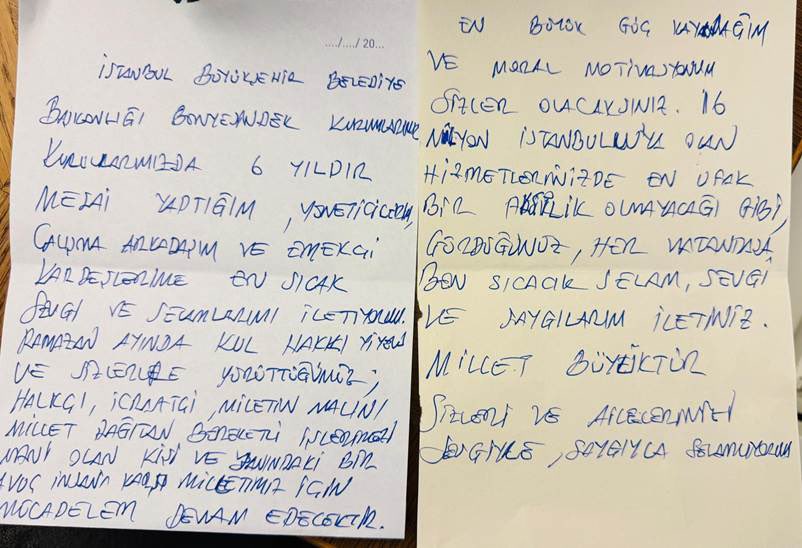 ..../..../ 20...
İSTANBUL BÜYÜKŞEHİR BELEDİYE
BAŞKANLIĞI BÜNYESİNDEK KURUMLARINA
KURULLARIMIZDA 6 YILDIR
MESAİ YAPTIĞIM, YÖNETİCİLERİM,
ÇALIŞMA ARKADAŞIM VE EMEKÇİ
KARDEŞLERİME EN SICAK
SEVGİ VE SELAMLARIMI İLETİYORUM.
RAMAZAN AYINDA KUL HAKKI YİYEN
VE SİZLERLE YÜRÜTTÜĞÜMÜZ;
HALKÇI, İCRAATÇİ, MİLETİN MALINI
MİLLET DAĞITAN BEREKETLİ İŞLERİMİZİ
MANİ OLAN KİŞİ VE YANINDAKİ BİR
AVUÇ İNSANA KARŞI MİLLETİMİZ İÇİN
MÜCADELEM DEVAM EDECEKTİR.
EN BÜYÜK GÜÇ KAYNAĞIM
VE MORAL MOTİVASYONUM
SİZLER OLACAKSINIZ. 16
MİLYON İSTANBULLUYA OLAN
HİZMETLERİNİZDE EN UFAK
BİR OLMAYACAĞI GİBİ,
GÖRDÜĞÜNÜZ, HER VATANDAŞA
BEN SICACIK SELAM, SEVGİ
VE SAYGILARIM İLETİNİZ.
MİLLET BÜYÜKTÜR
SİZLERİ VE AİLELERİNİZİ
SEVGİYLE, SAYGIYLA SELAMLIYORUM